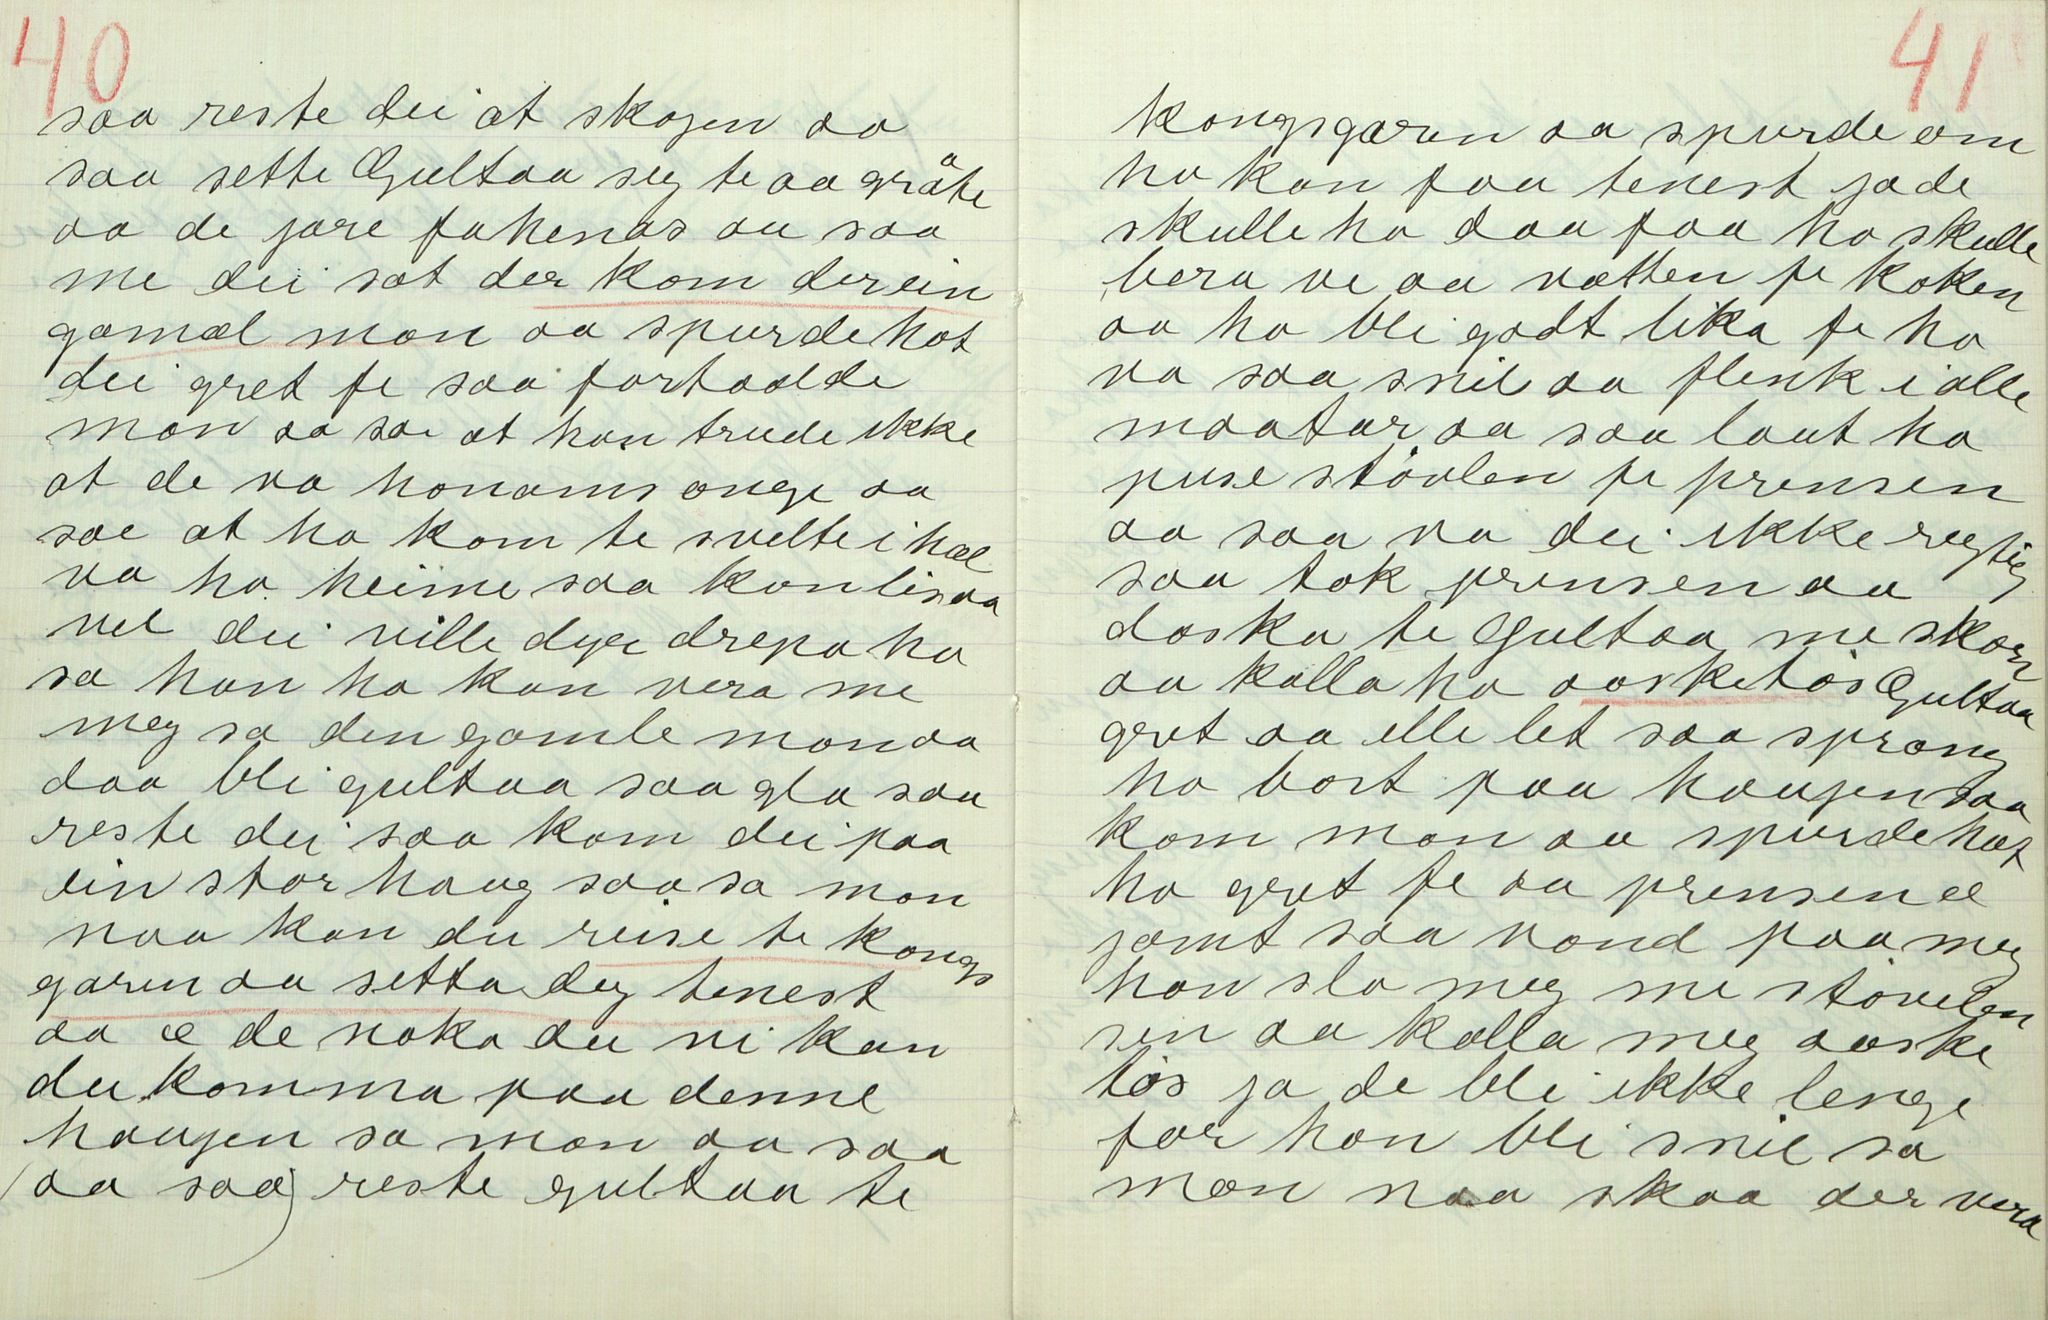 40
saa reste dei at skogen aa
saa sette Gultaa seg te aa gräte
aa de jore fahenas aa saa
me dei sat der kom der ein
gamal man aa spurde hot
dei gret fe saa fortaalde
man aa sae at han trude ikke
at de va honams onge aa
sae at ho kom te svelte i hæl
va ho heime saa kon lis aa
vel dei ville dyr drepa ho
sa han ho kan vera me
meg sa den gamle man aa
daa blei gultaa saa gla saa
reste dei saa kom dei paa
ein stor haug saa sa man
naa kan du reise te kongs
garin aa setta deg tenest
aa æ de noka du vi kan
du komma paa denne
haugen sa man aa saa
(aa saa) reste gultaa te
41
kongsgaren aa spurde om
ho kan faa tenest ja de
skulle ho daa faa ho skulle
bera ve aa vatten fe koken
aa ho blei godt lika fe ho
va saa snil aa flink i alle
maatar aa saa laut ho
puse stövlen fe prensen
aa saa va dei ikke regtig
saa tok prensen aa
daska te Gultaa me skorn
aa kalla ho aasketös Gultaa
gret aa ille let saa sprang
ho bort paa haugen saa
kom man aa spurde hot
ho gret fe aa prensen æ
jamt saa vond paa meg
han sla meg me stövelen
sin aa kalla meg aaske
tös ja de blei ikke lenge
for han blei snil sa
man naa skaa der vera